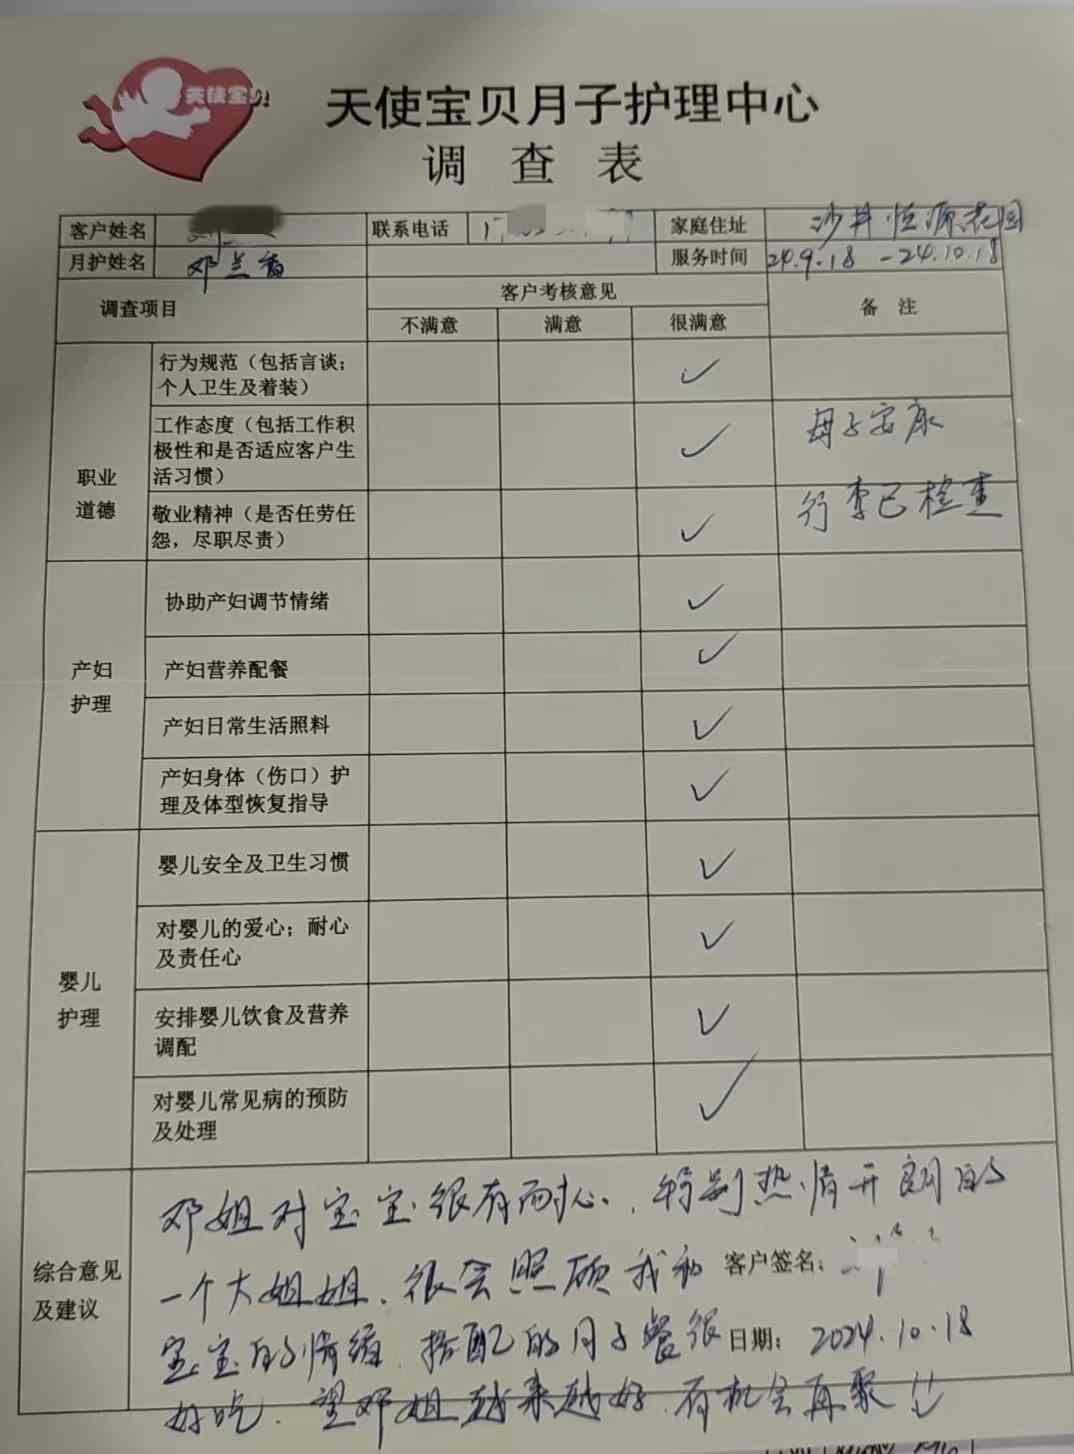 天使宝贝
天使宝贝月子护理中心
调 查 表
客户姓名 联系电话 家庭住址 沙井恒源花园
月护姓名 邓兰香 服务时间 24.9.18 - 24.10.18
调查项目 客户考核意见 备 注
不满意 满意 很满意
职业
道德
行为规范（包括言谈；
个人卫生及着装） ✓
工作态度（包括工作积
极性和是否适应客户生
活习惯） ✓ 母子安康
敬业精神（是否任劳任
怨，尽职尽责） ✓ 行李已检查
产妇
护理
协助产妇调节情绪 ✓
产妇营养配餐 ✓
产妇日常生活照料 ✓
产妇身体（伤口）护
理及体型恢复指导 ✓
婴儿
护理
婴儿安全及卫生习惯 ✓
对婴儿的爱心；耐心
及责任心 ✓
安排婴儿饮食及营养
调配 ✓
对婴儿常见病的预防
及处理 ✓
综合意见
及建议
邓姐对宝宝很有耐心，特别热情开朗的
一个大姐姐，很会照顾我和
宝宝的情绪，搭配的月子餐很
好吃，望邓姐越来越好，有机会再聚
客户签名：
日期： 2024.10.18